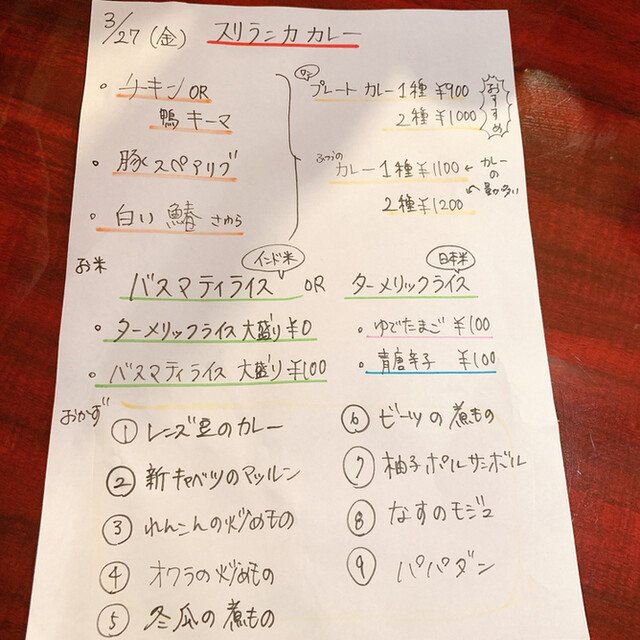 3/27(金) スリランカカレー
・チキン OR
鴨キーマ
・豚スペアリブ
・白い鰆 さわら
プレートカレー1種 ¥900
2種 ¥1000
おすすめ
ふつうの
カレー1種 ¥1100 ← カレーの量が多い
2種 ¥1200
お米
インド米
日本米
バスマティライス OR ターメリックライス
・ターメリックライス 大盛り ¥0
・バスマティライス 大盛り ¥100
・ゆでたまご ¥100
・青唐辛子 ¥100
おかず
① レンズ豆のカレー
② 新キャベツのマッルン
③ れんこんの炒めもの
④ オクラの炒めもの
⑤ 冬瓜の煮もの
⑥ ビーツの煮もの
⑦ 柚子ポルサンボル
⑧ なすのモジュ
⑨ パパダン